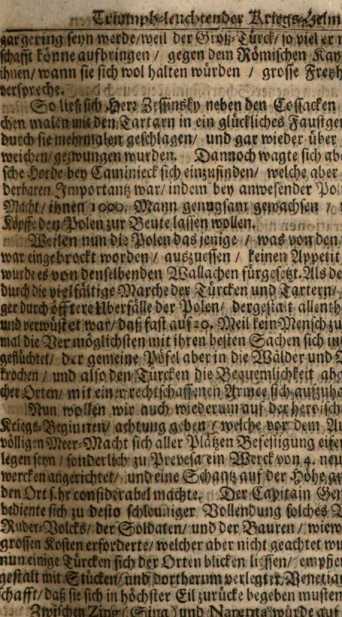 Triumph-leuchtender Kriegs-Helm
gar gering seyn werde/weil der Groß-Türck/ so viel er
schafft könne auffbringen / gegen dem Römischen Kay
ihnen/wann sie sich wol halten würden / grosse Freyh
verspreche.
So ließ sich Herr Zrsinsky neben den Cossacken
chen malen mit den Tartarn in ein glückliches Faustge
durch sie mehrmalen geschlagen/ und gar wieder über
weichen/gezwungen wurden. Dannoch wagte sich ab
sche Horde bey Caminieck sich einzufinden/ welche aber
derbaren Importantz war/indem bey anwesender Pol
Macht/ ihnen 1000. Mann genugsam gewachsen /
Köpffe den Polen zur Beute lassen wollen.
Weilen nun die Polen dasjenige / was von den
war eingebrockt worden / auszuessen / keinen Appetit
wurde es von denselbenden Wallachen fürgesetzt. Als de
durch die vielfältige Marche der Türcken und Tartern/
ger durch öfftere Uberfälle der Polen/ dergestalt allenth
und verwüstet war/daß fast auf 20. Meil kein Mensch zu
mal die Vermöglichsten mit ihren besten Sachen sich in
geflüchtet/ der gemeine Pöfel aber in die Wälder und
krochen / und also den Türcken die Bequemlichkeit abg
cher Orten/ mit einer rechtschaffenen Armee sich aufzuha
Nun wollen wir auch wiederum auf der heroisch
Kriegs-Beginnen/ achtung geben / welche vor dem Au
völligen Meer-Macht sich aller Plätzen Befestigung
legen seyn / sonderlich zu Prevesa ein Werck von 4. neu
wercken angerichtet/ und eine Schantz auf der Höhe
den Ort sehr considerabel machte. Der Capitain Gen
bediente sich zu desto schleuniger Vollendung solches
Ruder-Volcks/ der Soldaten/ und der Bauren/ wiew
grossen Kosten erforderte/ welcher aber nicht geachtet wu
nun einige Türcken sich der Orten blicken liessen/
gestalt mit Stücken/ und dortherum verlegter Venetian
schafft/ daß sie sich in höchster Eil zurücke begeben musten
Zwischen Zing/ (Sing) und Narenta würde gut